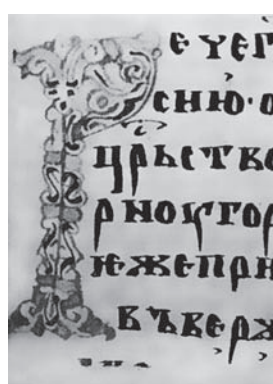 Рече г
сию·о
црьство
рноугор
ѥжепри
въверж